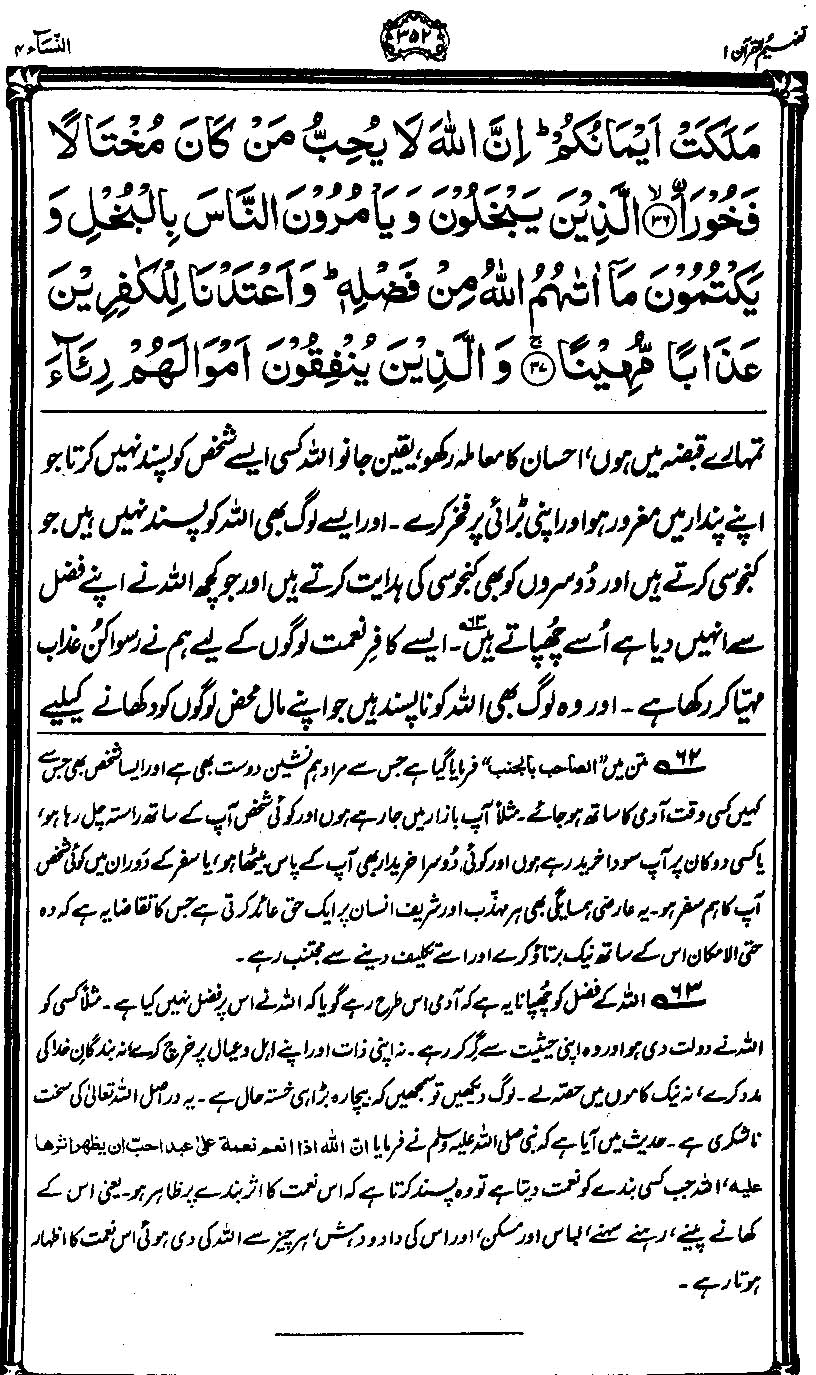 تفہیم القرآن ۱
۳۵۲
النّسَآء ۴
مَلَكَتْ اَيْمَانُكُمْ ؕ اِنَّ اللّٰهَ لَا يُحِبُّ مَنْ كَانَ مُخْتَالًا
فَخُوْرًا ﴿۳۶﴾ۙ الَّذِيْنَ يَبْخَلُوْنَ وَ يَاْمُرُوْنَ النَّاسَ بِالْبُخْلِ وَ
يَكْتُمُوْنَ مَاۤ اٰتٰىهُمُ اللّٰهُ مِنْ فَضْلِهٖ ؕ وَ اَعْتَدْنَا لِلْكٰفِرِيْنَ
عَذَابًا مُّهِيْنًا ﴿۳۷﴾ۚ وَ الَّذِيْنَ يُنْفِقُوْنَ اَمْوَالَهُمْ رِئَآءَ
تمہارے قبضہ میں ہوں، احسان کا معاملہ رکھو، یقین جانو اللہ کسی ایسے شخص کو پسند نہیں کرتا جو
اپنے پندار میں مغرور ہو اور اپنی بڑائی پر فخر کرے۔ اور ایسے لوگ بھی اللہ کو پسند نہیں ہیں جو
کنجوسی کرتے ہیں اور دُوسروں کو بھی کنجوسی کی ہدایت کرتے ہیں اور جو کچھ اللہ نے اپنے فضل
سے انہیں دیا ہے اُسے چُھپاتے ہیں۶۳۔ ایسے کافرِ نعمت لوگوں کے لیے ہم نے رسوا کُن عذاب
مہیّا کر رکھا ہے۔ اور وہ لوگ بھی اللہ کو ناپسند ہیں جو اپنے مال محض لوگوں کو دکھانے کیلیے
۶۲ متن میں "الصاحب بالجنب" فرمایا گیا ہے جس سے مراد ہم نشین دوست بھی ہے اور ایسا شخص بھی جس سے
کہیں کسی وقت آدمی کا ساتھ ہو جائے۔ مثلاً آپ بازار میں جا رہے ہوں اور کوئی شخص آپ کے ساتھ راستہ چل رہا ہو،
یا کسی دوکان پر آپ سودا خرید رہے ہوں اور کوئی دُوسرا خریدار بھی آپ کے پاس بیٹھا ہو، یا سفر کے دَوران میں کوئی شخص
آپ کا ہم سفر ہو۔ یہ عارضی ہمسایگی بھی ہر مہذّب اور شریف انسان پر ایک حق عائد کرتی ہے جس کا تقاضا یہ ہے کہ وہ
حتی الامکان اس کے ساتھ نیک برتاؤ کرے اور اسے تکلیف دینے سے مجتنب رہے۔
۶۳ اللہ کے فضل کو چُھپانا یہ ہے کہ آدمی اس طرح رہے گویا کہ اللہ نے اس پر فضل نہیں کیا ہے۔ مثلاً کسی کو
اللہ نے دولت دی ہو اور وہ اپنی حیثیت سے گر کر رہے۔ نہ اپنی ذات اور اپنے اہل و عیال پر خرچ کرے، نہ بندگانِ خدا کی
مدد کرے، نہ نیک کاموں میں حصّہ لے۔ لوگ دیکھیں تو سمجھیں کہ بیچارہ بڑا ہی خستہ حال ہے۔ یہ دراصل اللہ تعالیٰ کی سخت
ناشکری ہے۔ حدیث میں آیا ہے کہ نبی صلی اللہ علیہ وسلم نے فرمایا انّ اللہ اذا انعم نعمة علیٰ عبد احبّ ان یظھر اثرھا
علیہ، اللہ جب کسی بندے کو نعمت دیتا ہے تو وہ پسند کرتا ہے کہ اس نعمت کا اثر بندے پر ظاہر ہو۔ یعنی اس کے
کھانے پینے، رہنے سہنے، لباس اور مسکن، اور اس کی داد و دہش، ہر چیز سے اللہ کی دی ہوئی اس نعمت کا اظہار
ہوتا رہے۔